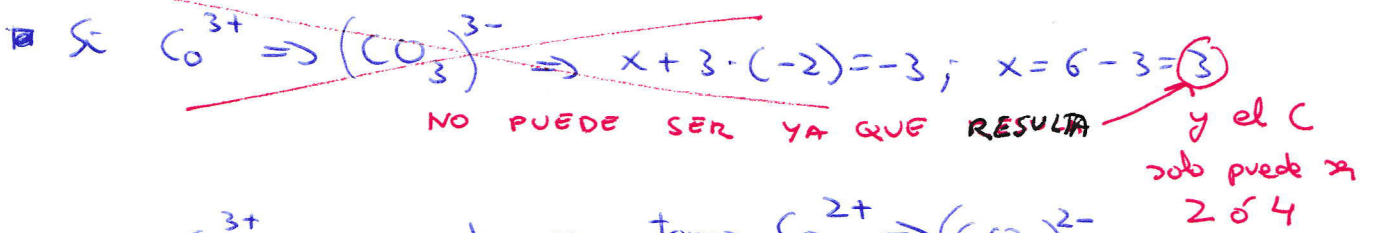 Si Co³⁺ => (CO₃)³⁻ => x + 3 · (-2) = -3 ; x = 6 - 3 = 3
NO PUEDE SER YA QUE RESULTA y el C
solo puede ser
2 ó 4
3+ Co²⁺ => (CO₃)²⁻